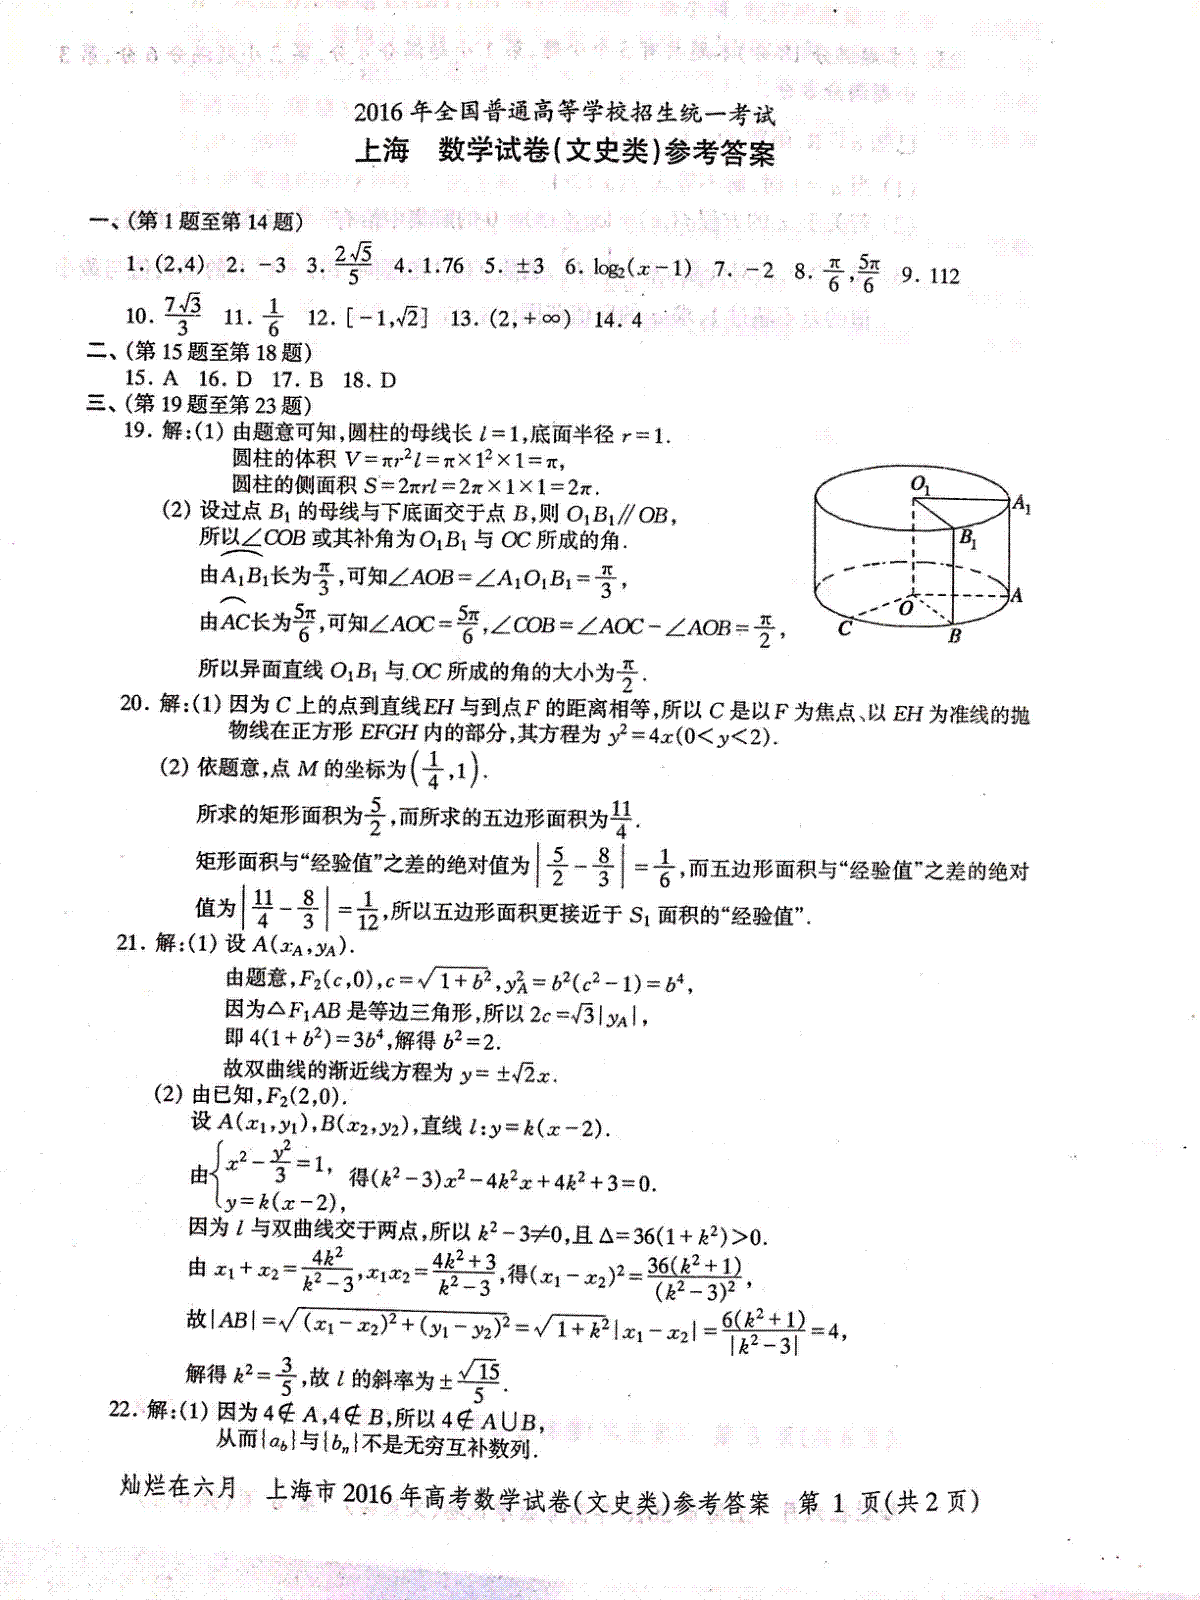 2016年全国普通高等学校招生统一考试
上海 数学试卷(文史类)参考答案
一、(第1题至第14题)
1. (2,4) 2. -3 3. 2√5/5 4. 1.76 5. ±3 6. log₂(x-1) 7. -2 8. π/6, 5π/6 9. 112
10. 7√3/3 11. 1/6 12. [-1,√2] 13. (2,+∞) 14. 4
二、(第15题至第18题)
15. A 16. D 17. B 18. D
三、(第19题至第23题)
19. 解:(1) 由题意可知,圆柱的母线长 l=1,底面半径 r=1.
圆柱的体积 V=πr²l=π×1²×1=π,
圆柱的侧面积 S=2πrl=2π×1×1=2π.
(2) 设过点 B₁ 的母线与下底面交于点 B,则 O₁B₁∥OB,
所以∠COB 或其补角为O₁B₁ 与 OC 所成的角.
由A₁B₁长为π/3,可知∠AOB=∠A₁O₁B₁=π/3,
由AC长为5π/6,可知∠AOC=5π/6,∠COB=∠AOC-∠AOB=π/2,
所以异面直线 O₁B₁ 与 OC 所成的角的大小为π/2.
O₁ A₁ B₁ O A C B
20. 解:(1) 因为 C 上的点到直线EH 与到点F 的距离相等,所以 C 是以F 为焦点、以 EH 为准线的抛
物线在正方形 EFGH 内的部分,其方程为 y²=4x(0<y<2).
(2) 依题意,点 M 的坐标为(1/4,1).
所求的矩形面积为5/2,而所求的五边形面积为11/4.
矩形面积与“经验值”之差的绝对值为|5/2-8/3|=1/6,而五边形面积与“经验值”之差的绝对
值为|11/4-8/3|=1/12,所以五边形面积更接近于 S₁ 面积的“经验值”.
21. 解:(1) 设 A(x_A,y_A).
由题意,F₂(c,0),c=√(1+b²),y_A²=b²(c²-1)=b⁴,
因为△F₁AB 是等边三角形,所以 2c=√3|y_A|,
即 4(1+b²)=3b⁴,解得 b²=2.
故双曲线的渐近线方程为 y=±√2x.
(2) 由已知,F₂(2,0).
设 A(x₁,y₁),B(x₂,y₂),直线 l:y=k(x-2).
由{x²-y²/3=1, y=k(x-2), 得(k²-3)x²-4k²x+4k²+3=0.
因为 l 与双曲线交于两点,所以 k²-3≠0,且 Δ=36(1+k²)>0.
由 x₁+x₂=4k²/(k²-3),x₁x₂=(4k²+3)/(k²-3),得(x₁-x₂)²=36(k²+1)/(k²-3)²,
故|AB|=√((x₁-x₂)²+(y₁-y₂)²)=√(1+k²)|x₁-x₂|=6(k²+1)/|k²-3|=4,
解得 k²=3/5,故 l 的斜率为±√15/5.
22. 解:(1) 因为 4∉A,4∉B,所以 4∉A∪B,
从而{a_b}与{b_n}不是无穷互补数列.
灿烂在六月 上海市2016年高考数学试卷(文史类)参考答案 第 1 页(共2页)